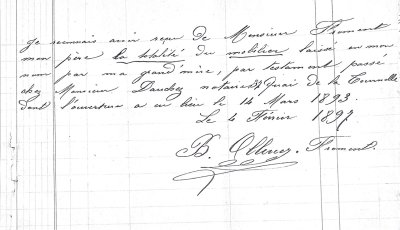 Je reconnais avoir reçu de Monsieur Froment
mon père la totalité du mobilier laissé en mon
nom par ma grand'mère, par testament passé
chez Monsieur Dauchez notaire 37 Quai de la Tournelle
dont l'ouverture a eu lieu le 14 Mars 1893.
Le 4 Février 1897
B. Froment.